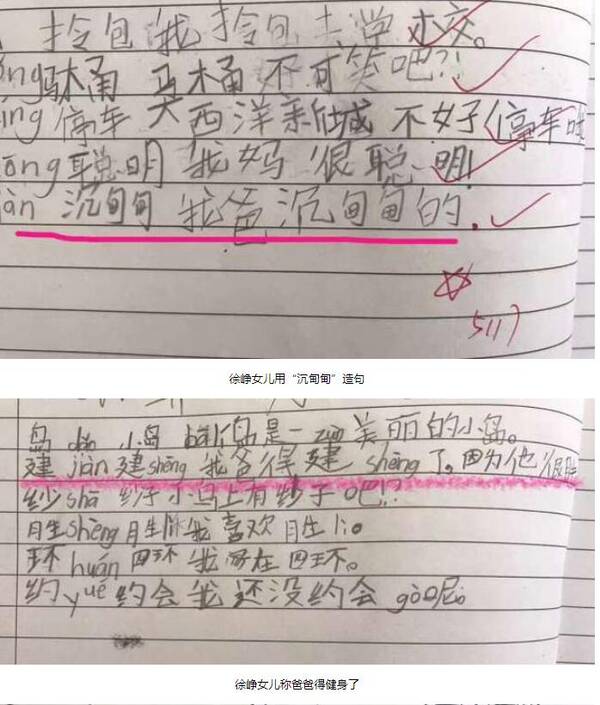 拎包 我拎包上学校。
ǒng 马桶 马桶不可笑吧?!
íng 停车 大西洋新城 不好停车
cōng 聪明 我妈很聪明!
àn 沉甸甸 我爸沉甸甸的.
5117
徐峥女儿用“沉甸甸”造句
岛 dǎo 小岛 bālí岛是一zuò美丽的小岛。
建 jiàn 建shēng 我爸得建shēng了。因为他很胖
纱 shā 纱子 小鸟上有纱子吧!?
胜 shèng 胜lì 我喜欢胜lì。
环 huán 四环 我家在四环。
约 yuē 约会 我还没约会guò呢。
徐峥女儿称爸爸得健身了